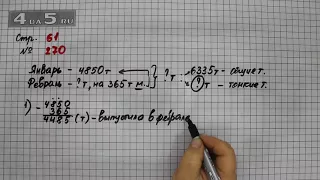 4 UA 5 RU
Стр. 61
№ 270
Январь - 4850т
Февраль - ?т, на 365т м.
?т
6335т - общие т.
?т - тонкие т.
1) - 4850
365
4485 (т) - выпустило в феврале